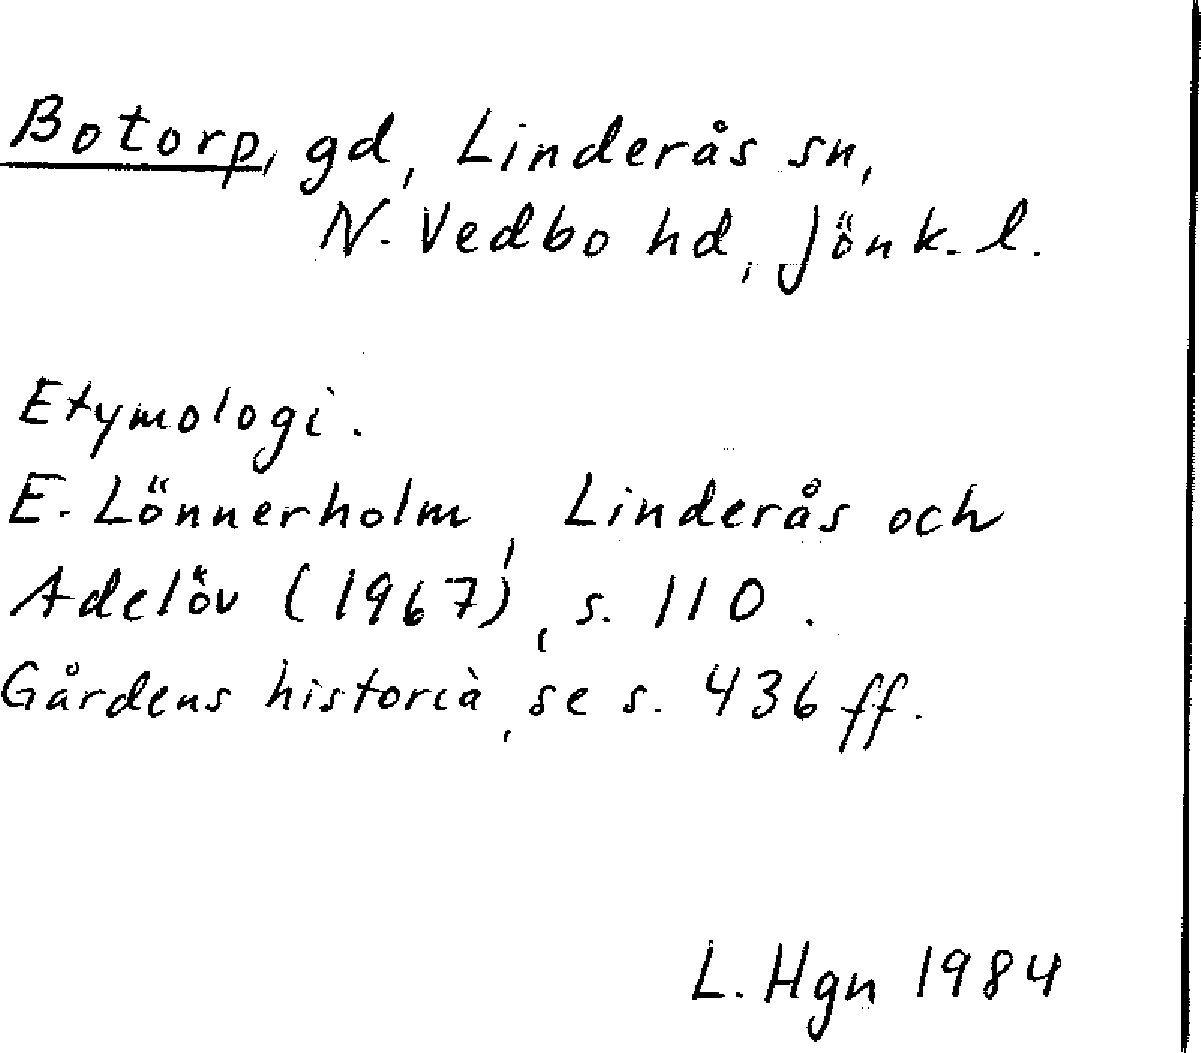 Botorp, gd, Linderås sn,
N. Vedbo hd, Jönk. l.
Etymologi.
E. Lönnerholm, Linderås och
Adelöv (1967), s. 110.
Gårdens historia, se s. 436 ff.
L. Hgn 1984